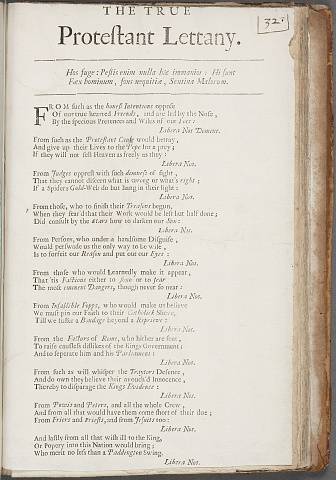 THE TRUE
Protestant Lettany.
32.
Hos fuge: Pestis enim nulla hac immanior: Hi sunt
Fæx hominum, fons nequitiæ, Sentina Malorum.
FROM such as the honest Intentions oppose
Of our true hearted Friends, and are led by the Nose,
By the specious Pretences and Wiles of our Foes:
Libera Nos Domine.
From such as the Protestant Cause would betray,
And give up their Lives to the Pope for a prey;
If they will not sell Heaven as freely as they:
Libera Nos.
From Judges opprest with such dimness of sight,
That they cannot discern what is wrong or what's right;
If a Spiders Gold-Web do but hang in their light:
Libera Nos.
From those, who to finish their Treason begun,
When they fear'd that their Work would be left but half done;
Did consult by the Stars how to darken our Sun:
Libera Nos.
From Persons, who under a handsome Disguise,
Would perswade us the only way to be wise,
Is to forfeit our Reason and put out our Eyes:
Libera Nos.
From those who would Learnedly make it appear,
That 'tis Factious either to hear or to fear
The most eminent Dangers, though never so near:
Libera Nos.
From Infallible Fopps, who would make us believe
We must pin our Faith to their Catholick Sleeve,
Till we take a Bandage beyond a Reprieve:
Libera Nos.
From the Factors of Rome, who hither are sent,
To raise causless dislikes of the Kings Government;
And to seperate him and his Parliament:
Libera Nos.
From such as will whisper the Traytors Defence,
And do own they believe their avouch'd Innocence,
Thereby to disparage the Kings Evidence:
Libera Nos.
From Powis and Peters, and all the whole Crew,
And from all that would have them come short of their due;
From Friers and Priests, and from Jesuits too:
Libera Nos.
And lastly from all that wish ill to the King,
Or Popery into this Nation would bring;
Who merit no less than a Paddington Swing,
Libera Nos.